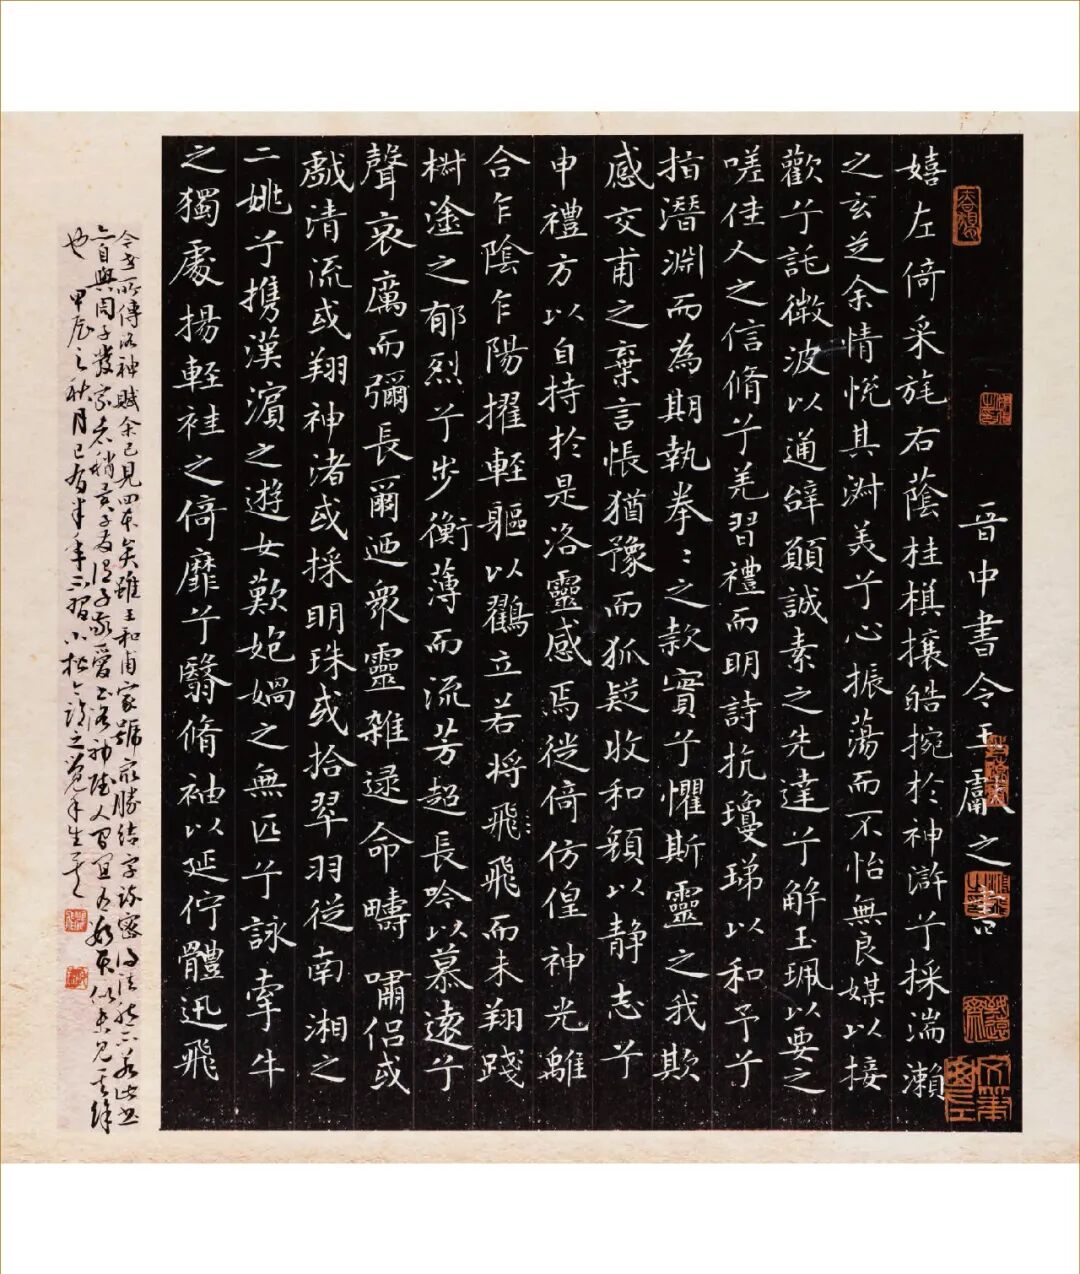 晉中書令王獻之書
嬉左倚采旄右蔭桂棋攘皓捥於神滸兮採湍瀨
之玄芝余情悅其淑美兮心振蕩而不怡無良媒以接
歡兮託微波以通辭願誠素之先達兮解玉珮以要之
嗟佳人之信脩兮羌習禮而明詩抗瓊珶以和予兮
指潛淵而為期執拳〻之款實兮懼斯靈之我欺
感交甫之棄言悵猶豫而狐疑收和顏以静志兮
申禮方以自持於是洛靈感焉徙倚仿偟神光離
合乍陰乍陽擢輕軀以鶴立若将飛飛而未翔踐
椒塗之郁烈兮步衡薄而流芳超長吟以慕遠兮
聲哀厲而彌長爾迺衆靈雜遝命疇嘯侣或
戲清流或翔神渚或採明珠或拾翠羽從南湘之
二姚兮携漢濱之遊女歎匏媧之無匹兮詠牽牛
之獨處揚輕袿之倚靡兮翳脩袖以延佇體迅飛
今世所傳洛神賦余已見四本矣雖王和甫家號最勝結字疎密得法然不若此書
亦自與周子發家者稍異子敬愛書洛神賦人間宜有數本似未見其餘
也 甲辰之秋月已有半年不習小楷今臨之覺手生矣